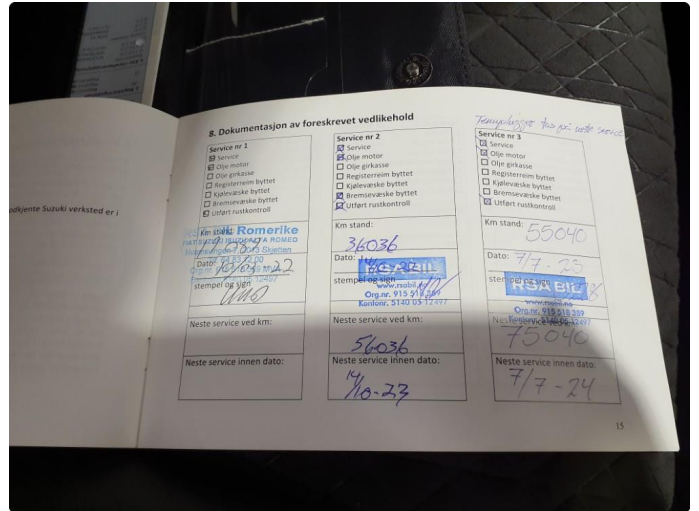 8. Dokumentasjon av foreskrevet vedlikehold
odkjente Suzuki verksted er i
Service nr 1
Service
Olje motor
Olje girkasse
Registerreim byttet
Kjølevæske byttet
Bremsevæske byttet
Utført rustkontroll
Km stand:
Romerike
Dato:
stempel og sign
Neste service ved km:
Neste service innen dato:
Service nr 2
Service
Olje motor
Olje girkasse
Registerreim byttet
Kjølevæske byttet
Bremsevæske byttet
Utført rustkontroll
Km stand:
36036
Dato:
stempel og sign
RSA BIL
www.rsabil.no
Org.nr. 915 518 389
Kontonr. 5140 05 12497
Neste service ved km:
56036
Neste service innen dato:
14/10-23
Tennplugger tas på neste service
Service nr 3
Service
Olje motor
Olje girkasse
Registerreim byttet
Kjølevæske byttet
Bremsevæske byttet
Utført rustkontroll
Km stand:
55040
Dato:
7/7-23
stempel og sign
RSA BIL
www.rsabil.no
Org.nr. 915 518 389
Kontonr. 5140 05 12497
Neste service ved km:
75040
Neste service innen dato:
7/7-24
15